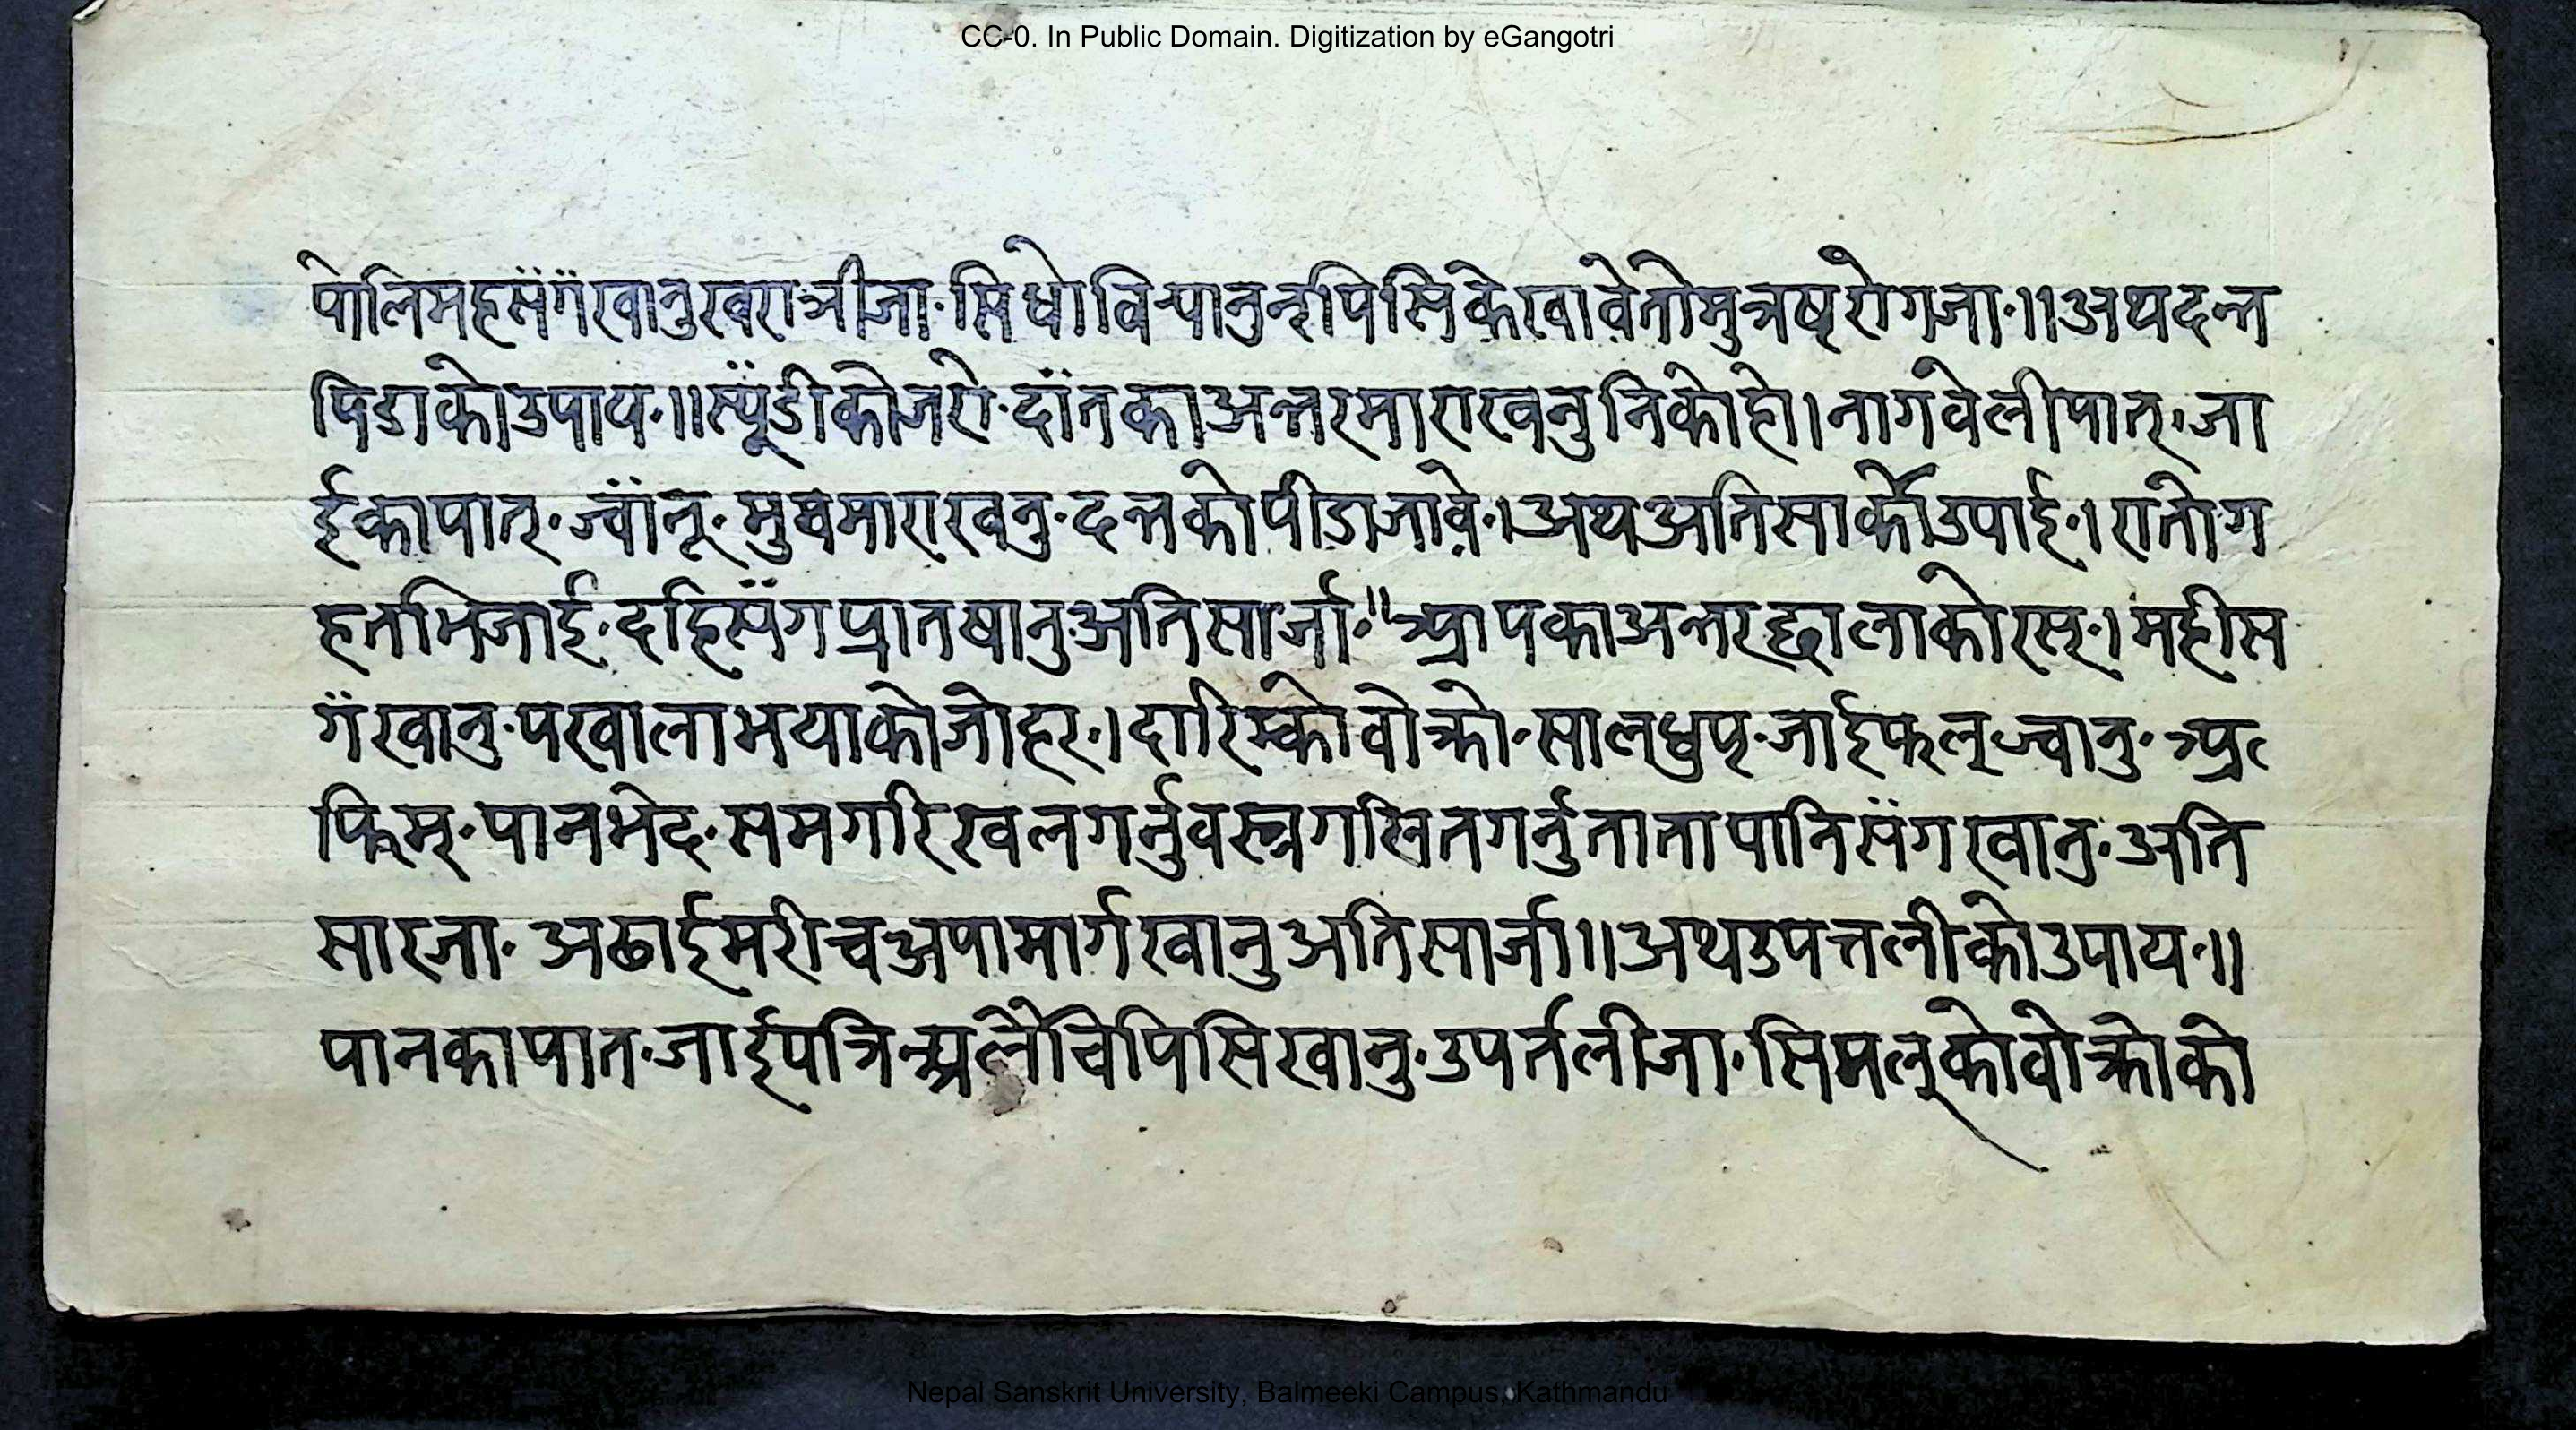 CC-0. In Public Domain. Digitization by eGangotri
पोलिमहसँगँखानुखरात्रीजा॰सिधोविर्‍यानुन्‌पिसिकेखावेतोमुत्रषृरोगजा॰॥अथदन्त
पिडाकोउपाय॰॥स्यूँडीकोजरो॰दाँतकाअन्तरमाराखनुनिकोहो।नागवेलीपात्॰जा
ईकापात्॰ज्वाँनू॰मुखमाराखनु॰दन्तकोपीडाजावे॰।अथअतिसार्कोउपाई॰।रातोग
हतभिजाई॰दहिसँगप्रातषानुअतिसार्जा॰॥आपकाअन्तरछालाकोरस्॰।महीस
गँखानु॰पखालाभयाकोजोहर॰।दारिम्कोवोक्रो॰सालधुपृ॰जाईफल्ज्वानु॰अ
फिम्॰पानभेद॰समगरिखलगर्नुवस्त्रगलितगर्नुतातापानिसँगखानु॰अति
सारजा॰अढाईमरीचअपामार्गखानुअतिसार्जा॥अथउपत्तलीकोउपाय॰॥
पानकापात॰जाईपत्रिअलैचिपिसिखानु॰उपर्तलीजा॰सिमल्कोवोक्रोको
Nepal Sanskrit University, Balmeeki Campus, Kathmandu